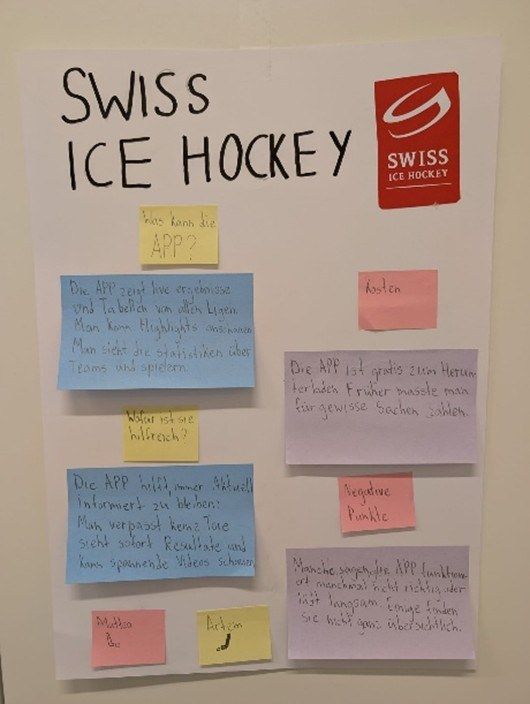 SWISS
ICE HOCKEY
SWISS
ICE HOCKEY
Was kann die
APP?
Die APP zeigt live ergebnisse
und Tabellen von allen Ligen.
Man kann Highlights anschauen
Man sieht die statistiken über
Teams und spielern.
Wofür ist sie
hilfreich?
Die APP hilft immer Aktuell
informiert zu bleiben:
Man verpasst keine Tore
sieht sofort Resultate und
kann spannende Videos schauen
Kosten
Die APP ist gratis zum Herun-
terladen Früher musste man
für gewisse Sachen zahlen.
Negative
Punkte
Manche sagen, die APP funktioni-
ert manchmal nicht richtig oder
läft langsam. Einige finden
sie nicht ganz übersichtlich.
Matteo
B.
Artem
J